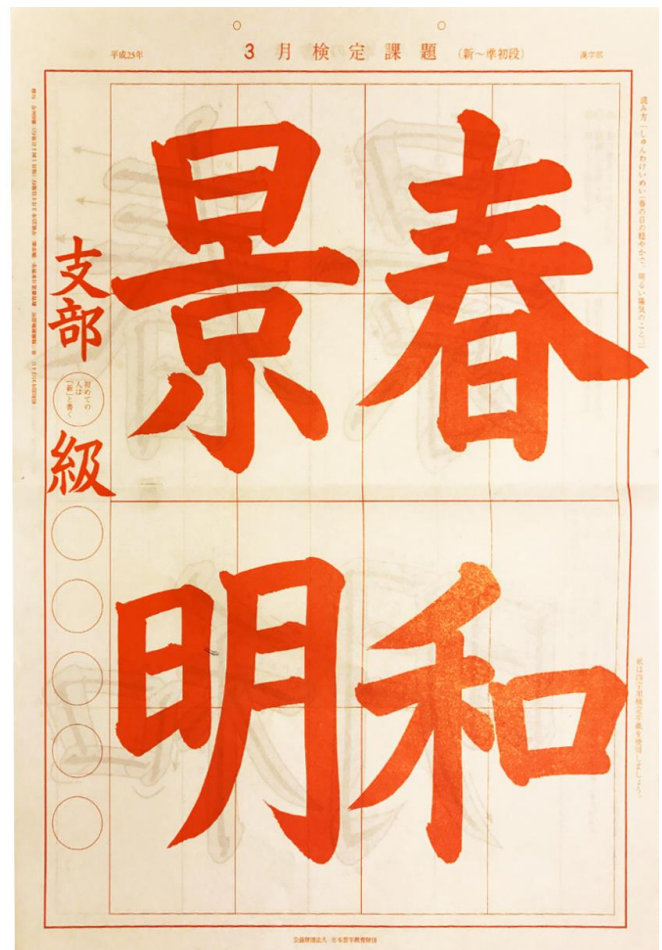 平成25年
3月検定課題(新~準初段)
漢字部
読み方「しゅんわけいめい」春の日の穏やかで、明るい陽気のこと。
春和
景明
支部
初めての
人は
「新」と書く
級
公益財団法人 日本習字教育財団